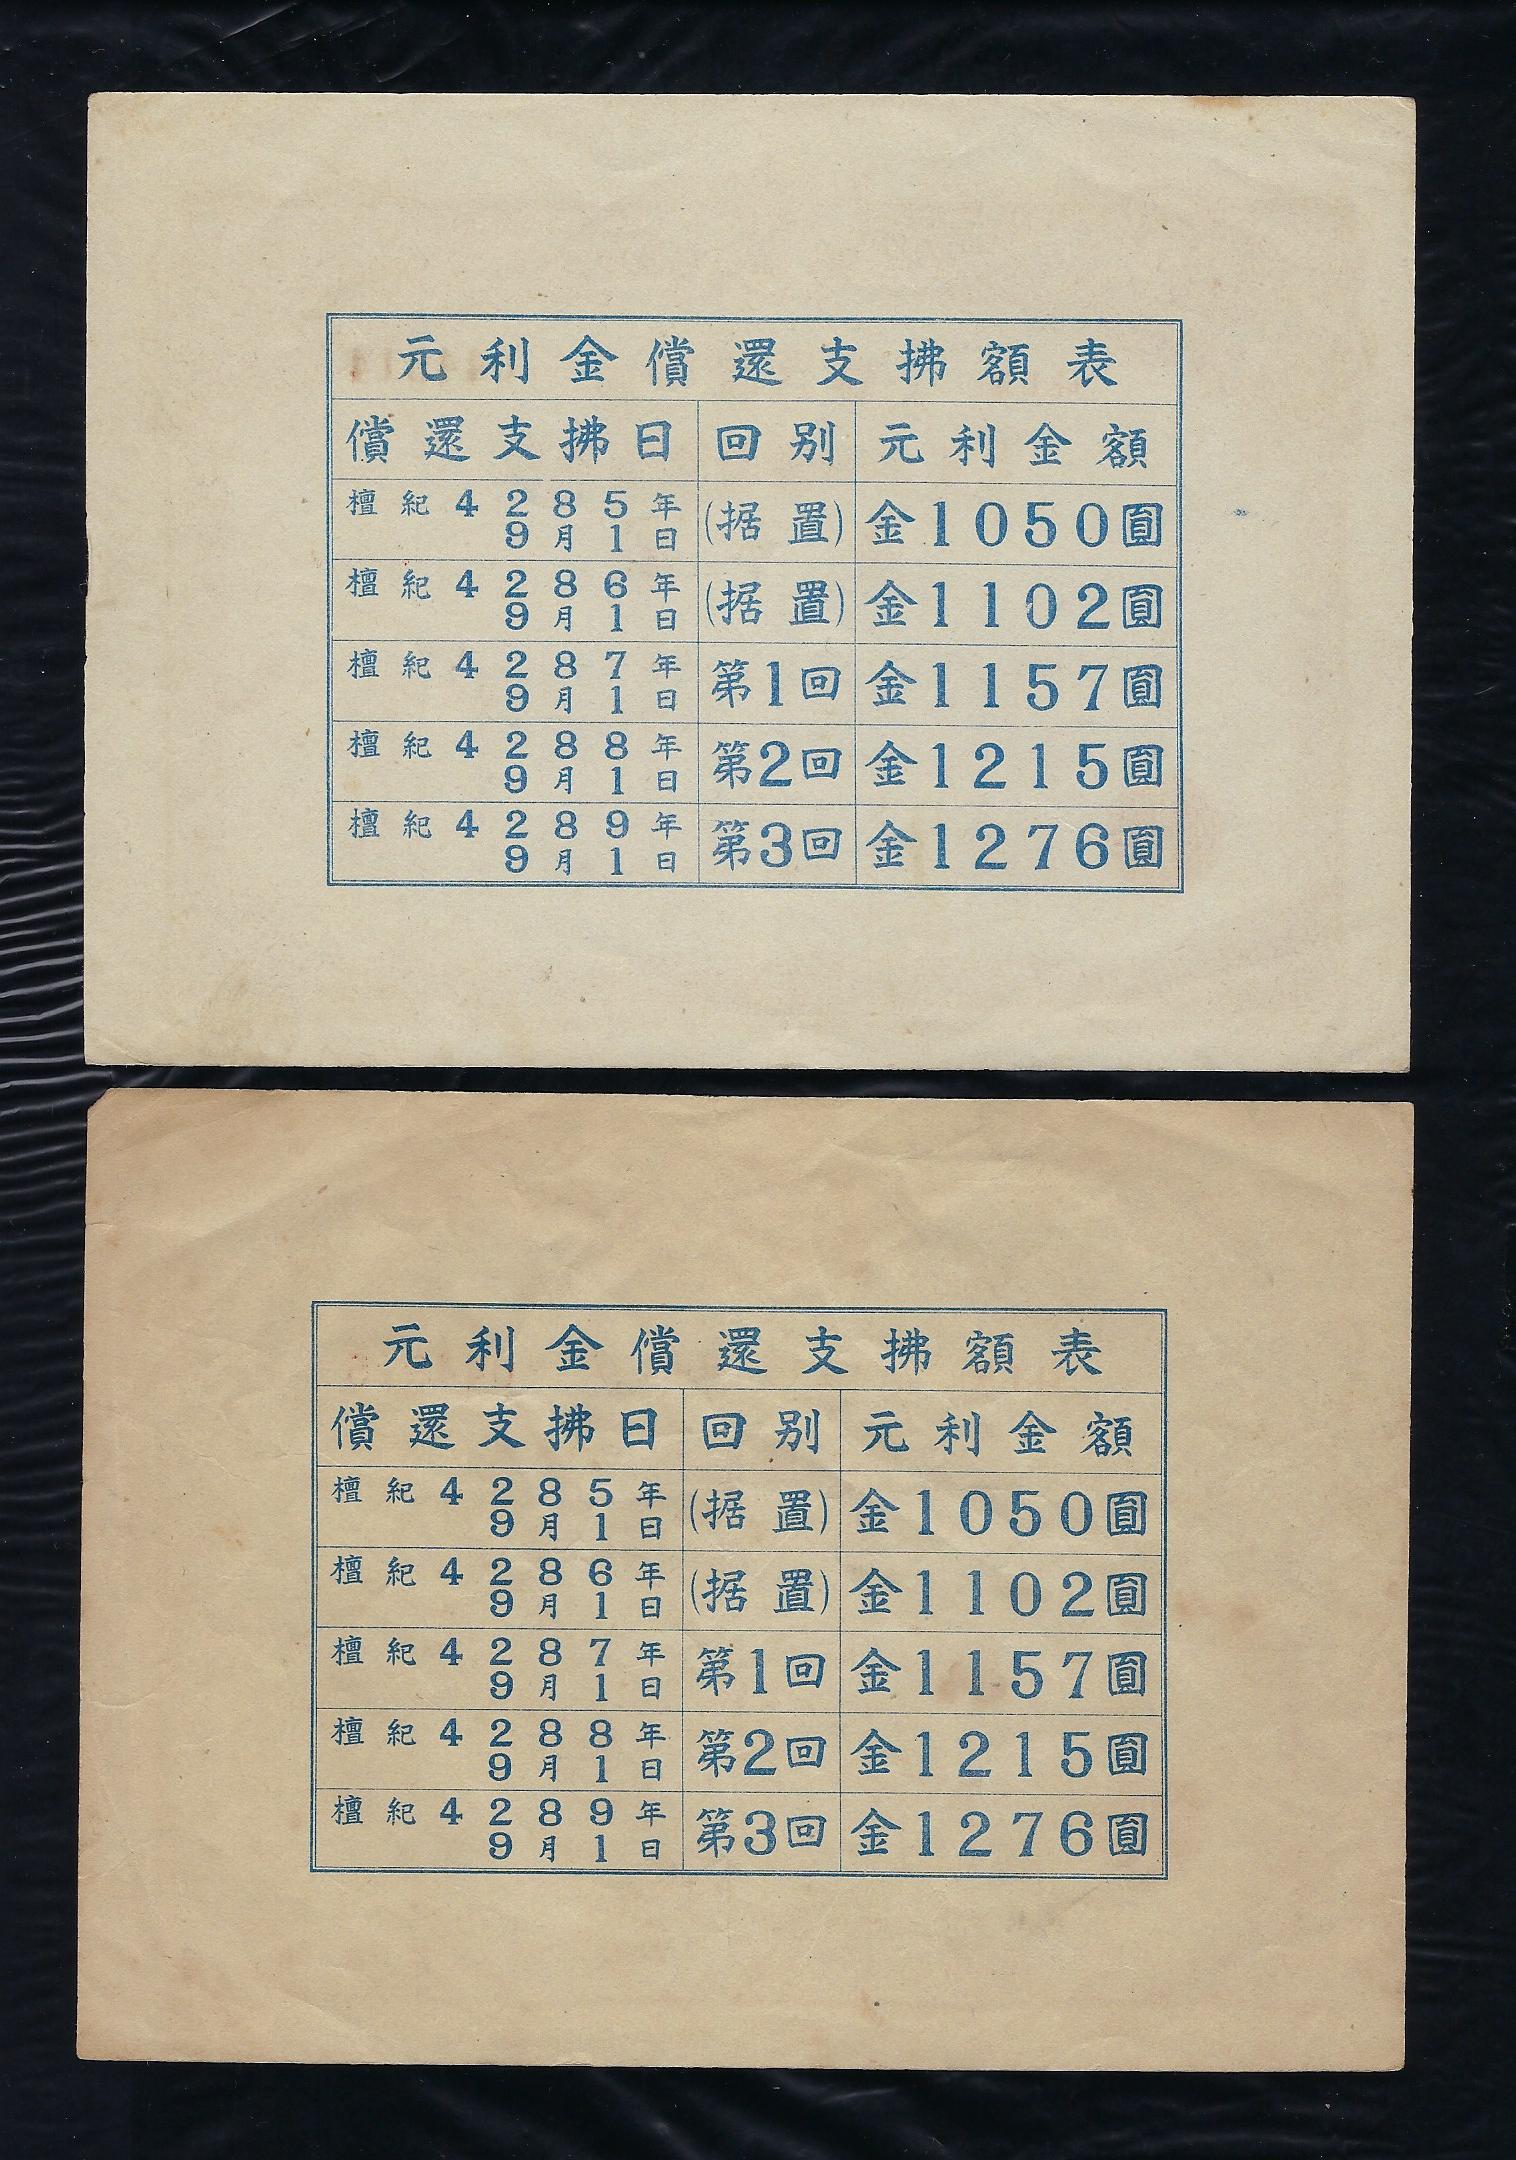 元利金償還支拂額表
償還支拂日 回別 元利金額
檀紀4285年 (据置) 金1050圓
9月1日
檀紀4286年 (据置) 金1102圓
9月1日
檀紀4287年 第1回 金1157圓
9月1日
檀紀4288年 第2回 金1215圓
9月1日
檀紀4289年 第3回 金1276圓
9月1日
元利金償還支拂額表
償還支拂日 回別 元利金額
檀紀4285年 (据置) 金1050圓
9月1日
檀紀4286年 (据置) 金1102圓
9月1日
檀紀4287年 第1回 金1157圓
9月1日
檀紀4288年 第2回 金1215圓
9月1日
檀紀4289年 第3回 金1276圓
9月1日